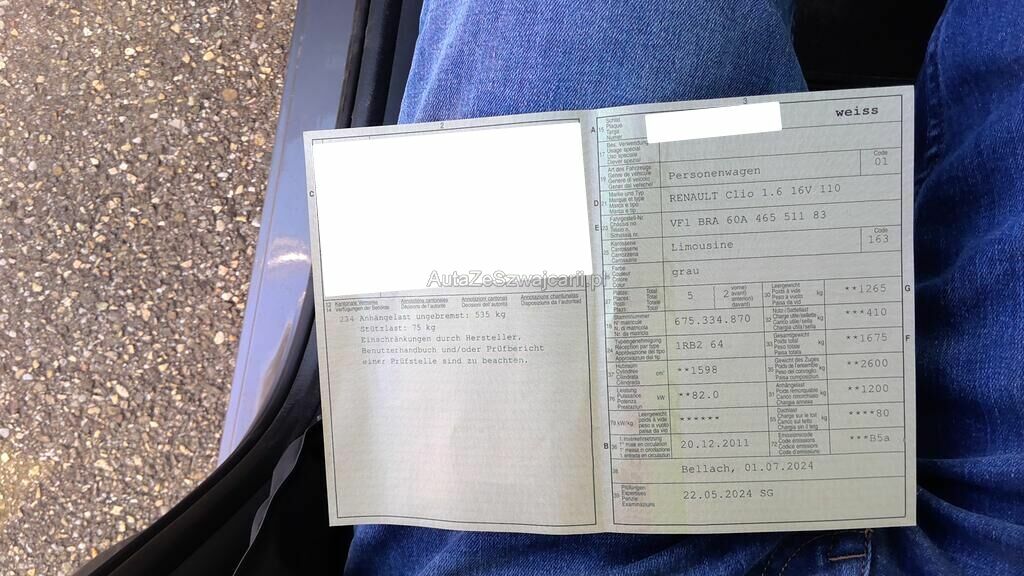 2
C
AutaZeSzwajcarii.pl
13 Kantonale Vermerke
14 Verfügungen der Behörde
Annotations cantonales
Décisions de l'autorité
Annotazioni cantonali
Decisioni dell'autorità
Annotaziuns chantunalas
Disposiziuns da l'autoritad
234 Anhängelast ungebremst: 535 kg
Stützlast: 75 kg
Einschränkungen durch Hersteller,
Benutzerhandbuch und/oder Prüfbericht
einer Prüfstelle sind zu beachten.
3
A 15 Schild
Plaque
Targa
Numer
weiss
17 Bes. Verwendung
Usage spécial
Uso speciale
Diever spezial
19 Art des Fahrzeugs
Genre de véhicule
Genere di veicolo
Gener dal vehichel
Personenwagen
Code
01
D 21 Marke und Typ
Marque et type
Marca e tipo
Marca e tip
RENAULT Clio 1.6 16V 110
E 23 Fahrgestell-Nr.
Châssis no
Telaio n.
Schassis nr.
VF1 BRA 60A 465 511 83
25 Karosserie
Carrosserie
Carrozzeria
Carossaria
Limousine
Code
163
Farbe
Couleur
Colore
Colur
grau
27 Plätze: Total
Places: Total
Posti: Totale
Plazs: Total
5
2
vorne)
avant)
anteriori)
davant)
30 Leergewicht
Poids à vide
Peso a vuoto
Paisa da vid
kg
**1265
G
18 Stammnummer
N° matricule
N. di matricola
Nr. da matricla
675.334.870
32 Nutz-/Sattellast
Charge utile/sellette
Carico utile/sella
Chargia utila/sella
kg
***410
24 Typengenehmigung
Réception par type
Approvazione del tipo
Approvaziun dal tip
1RB2 64
33 Gesamtgewicht
Poids total
Peso totale
Paisa totala
kg
**1675
F
37 Hubraum
Cylindrée
Cilindrata
Cilindrada
cm³
**1598
35 Gewicht des Zuges
Poids de l'ensemble
Peso del convoglio
Paisa cumposiziun
kg
**2600
76 Leistung
Puissance
Potenza
Prestaziun
kW
**82.0
31 Anhängelast
Poids remorquable
Carico rimorchiato
Chargia annexa
kg
**1200
78 kW/kg
Leergewicht
poids à vide
peso a vuoto
paisa da vid
******
55 Dachlast
Charge sur le toit
Carico sul tetto
Chargia sin il tetg
kg
****80
B 36 1. Inverkehrsetzung
1re mise en circulation
1a messa in circolazione
1. entrada en circulaziun
20.12.2011
72 Emissionscode
Code émissions
Codice emissioni
Code d'emissiuns
***B5a
38
Bellach, 01.07.2024
39 Prüfungen
Expertises
Perizie
Examinaziuns
22.05.2024 SG